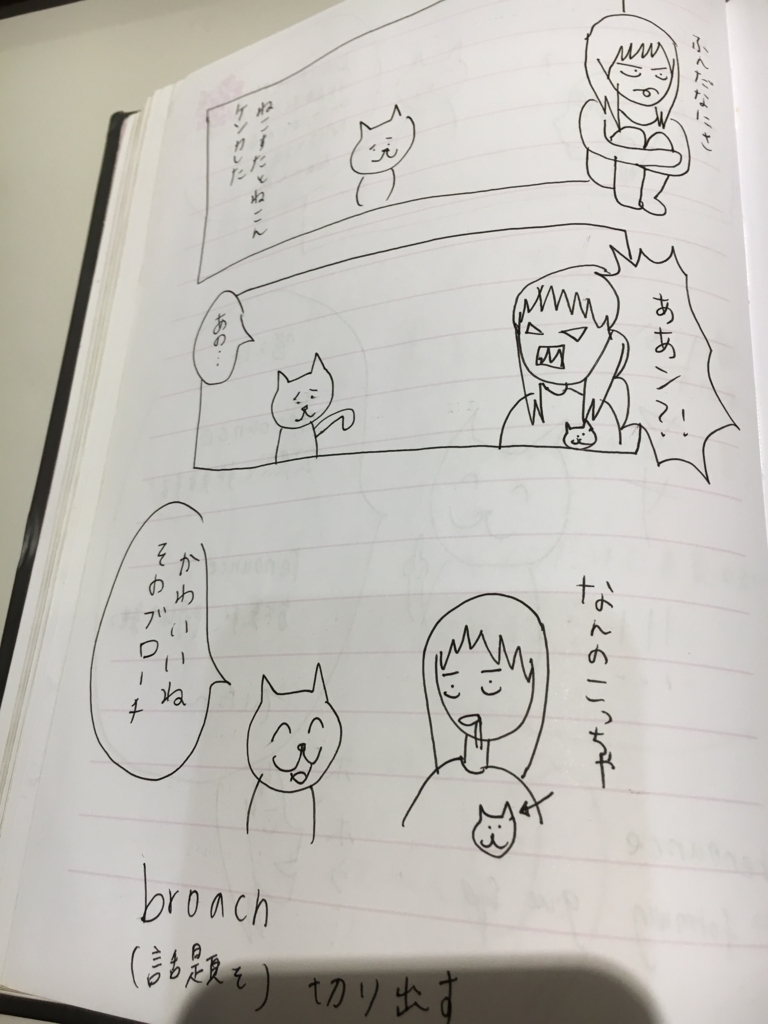 ふんだなにさ
ねこすたとねこん
ケンカした
ああン?!
あの…
なんのこっちゃ
かわいいね
そのブローチ
broach
(話題を) 切り出す